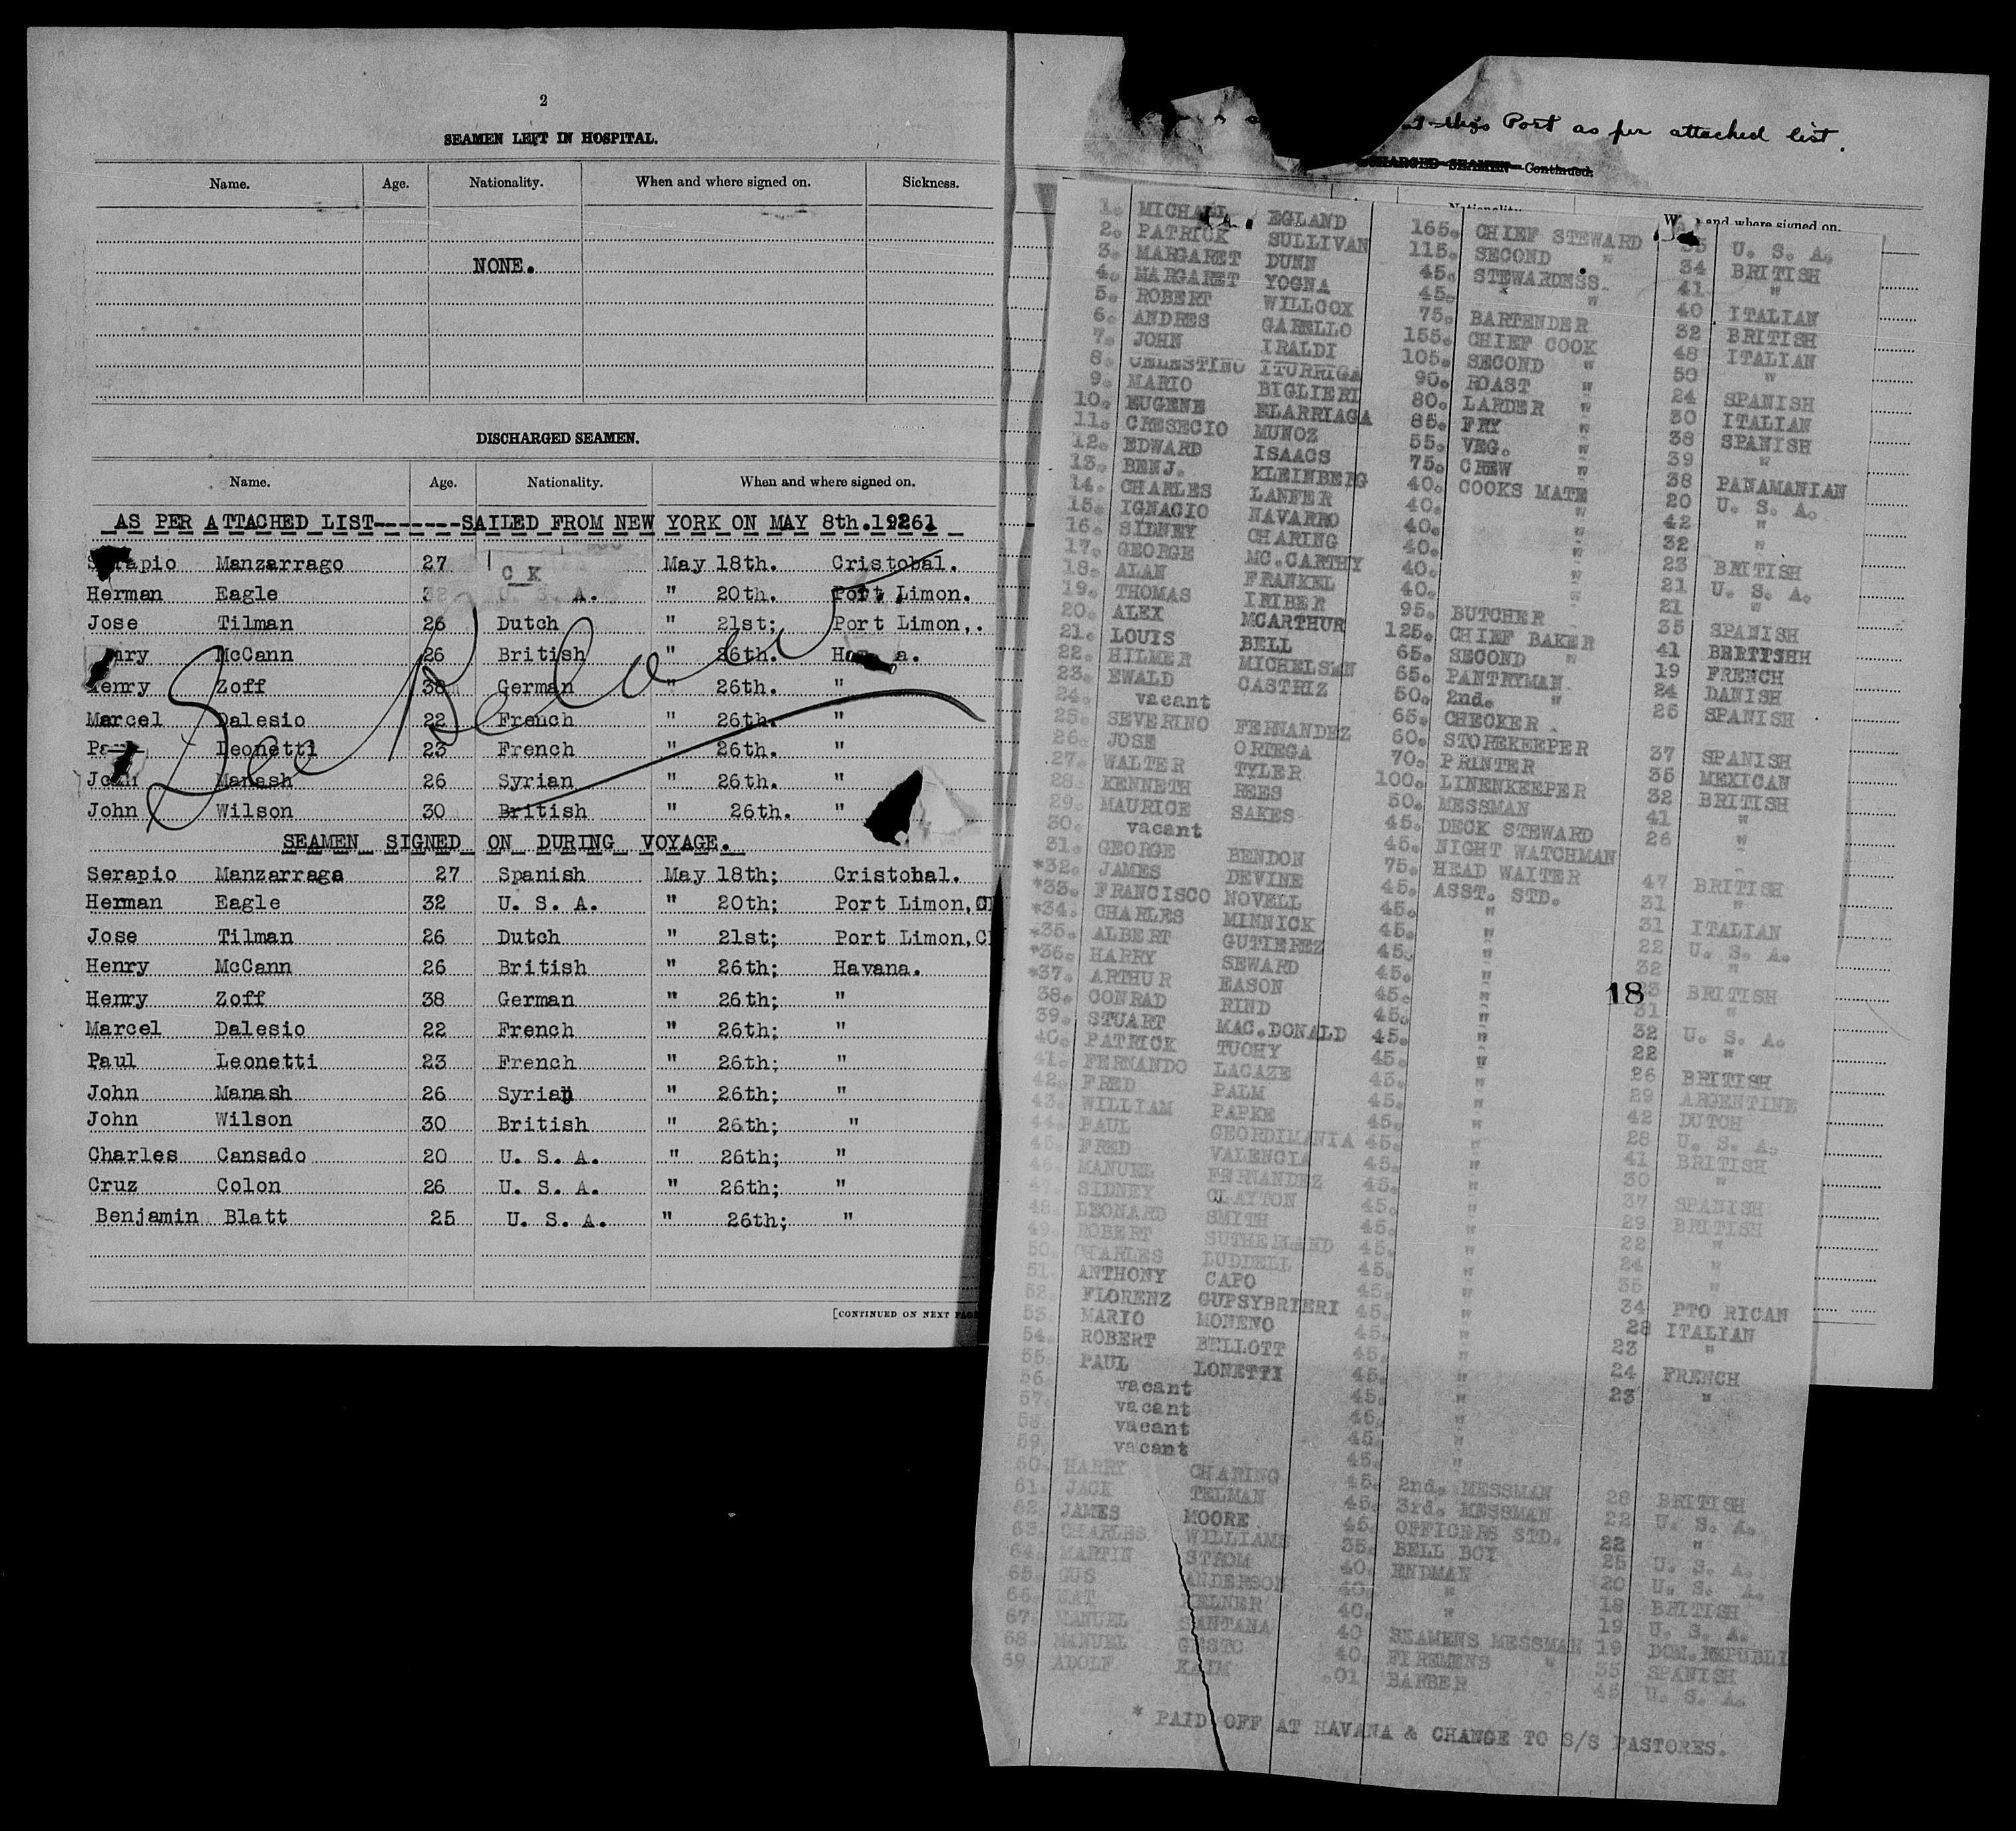 2
SEAMEN LEFT IN HOSPITAL.
Name. Age. Nationality. When and where signed on. Sickness.
NONE.
DISCHARGED SEAMEN.
Name. Age. Nationality. When and where signed on.
AS PER ATTACHED LIST-------SAILED FROM NEW YORK ON MAY 8th.
Manzarrago 27 May 18th. Cristobal.
C K
Herman Eagle 32 U. S. A. " 20th. Port Limon.
Jose Tilman 26 Dutch " 21st; Port Limon,.
McCann 26 British " 26th.
Zoff 38 German " 26th. "
Marcel Dalesio 22 French " 26th. "
Leonetti 23 French " 26th. "
Manash 26 Syrian " 26th. "
John Wilson 30 British " 26th. "
See Below
SEAMEN SIGNED ON DURING VOYAGE.
Serapio Manzarraga 27 Spanish May 18th; Cristobal.
Herman Eagle 32 U. S. A. " 20th; Port Limon,
Jose Tilman 26 Dutch " 21st; Port Limon,
Henry McCann 26 British " 26th; Havana.
Henry Zoff 38 German " 26th; "
Marcel Dalesio 22 French " 26th; "
Paul Leonetti 23 French " 26th; "
John Manash 26 Syrian " 26th; "
John Wilson 30 British " 26th; "
Charles Cansado 20 U. S. A. " 26th; "
Cruz Colon 26 U. S. A. " 26th; "
Benjamin Blatt 25 U. S. A. " 26th; "
[CONTINUED ON NEXT
this Port as per attached list.
SEAMEN Continued.
and where signed on.
1. EGLAND 165. CHIEF STEWARD U. S. A.
2. PATRICK SULLIVAN 115. SECOND " 34 BRITISH
3. MARGARET DUNN 45. STEWARDESS. 41 "
4. MARGARET YOGNA 45. " 40 ITALIAN
5. ROBERT WILLCOX 75. BARTENDER 32 BRITISH
6. ANDRES GARELLO 155. CHIEF COOK 48 ITALIAN
7. JOHN IRALDI 105. SECOND " 50 "
8. CELESTINO ITURRIGA 90. ROAST " 24 SPANISH
9. MARIO BIGLIERI 80. LARDER " 30 ITALIAN
10. EUGENE ELARRIAGA 85. FRY " 38 SPANISH
11. CRESECIO MUNOZ 55. VEG. " 39 "
12. EDWARD ISAACS 75. CREW " 38 PANAMANIAN
13. BENJ. KLEINBERG 40. COOKS MATE 20 U. S. A.
14. CHARLES LANFER 40. " 42 "
15. IGNACIO NAVARRO 40. " 32 "
16. SIDNEY CHARING 40. " 23 BRITISH
17. GEORGE MC.CARTHY 40. " 21 U. S. A.
18. ALAN FRANKEL 40. " 21 "
19. THOMAS IRIBER 95. BUTCHER 35 SPANISH
20. ALEX MCARTHUR 125. CHIEF BAKER 41 BRITISHH
21. LOUIS BELL 65. SECOND " 19 FRENCH
22. HILMER MICHELSEN 65. PANTRYMAN 24 DANISH
23. EWALD CASTRIZ 50. 2nd. " 25 SPANISH
24. vacant 65. CHECKER
25. SEVERINO FERNANDEZ 60. STOREKEEPER 37 SPANISH
26. JOSE ORTEGA 70. PRINTER 35 MEXICAN
27. WALTER TYLER 100. LINENKEEPER 32 BRITISH
28. KENNETH REES 50. MESSMAN 41 "
29. MAURICE SAKES 45. DECK STEWARD 26 "
30. vacant 45. NIGHT WATCHMAN
31. GEORGE BENDON 75. HEAD WAITER 47 BRITISH
*32. JAMES DEVINE 45. ASST. STD. 31 "
*33. FRANCISCO NOVELL 45. " 31 ITALIAN
*34. CHARLES MINNICK 45. " 22 U. S. A.
*35. ALBERT GUTIEREZ 45. " 32 "
*36. HARRY SEWARD 45. " BRITISH
*37. ARTHUR EASON 45. " 31 "
18
38. CONRAD RIND 45. " 32 U. S. A.
39. STUART MAC.DONALD 45. " 22 "
40. PATRICK TUOHY 45. " 26 BRITISH
41. FERNANDO LACAZE 45. " 29 ARGENTINE
42. FRED PALM 45. " 42 DUTCH
43. WILLIAM PAPKE 45. " 28 U. S. A.
44. PAUL GEORDIMANIA 45. " 41 BRITISH
45. FRED VALENCIA 45. " 30 "
46. MANUEL FERNANDEZ 45. " 37 SPANISH
47. SIDNEY CLAYTON 45. " 29 BRITISH
48. LEONARD SMITH 45. " 22 "
49. ROBERT SUTHERLAND 45. " 24 "
50. CHARLES LUDDELL 45. " 35 "
51. ANTHONY CAPO 45. " 34 PTO RICAN
52. FLORENZ GUPSYBRIERI 45. " 28 ITALIAN
53. MARIO MONENO 45. " 23 "
54. ROBERT BELLOTT 45. " 24 FRENCH
55. PAUL LONETTI 45. " 23 "
56. vacant 45. "
57. vacant 45. "
58. vacant 45. "
59. vacant 45. "
60. HARRY CHARING 45. 2nd. MESSMAN 28 BRITISH
61. JACK TELMAN 45. 3rd. MESSMAN 22 U. S. A.
62. JAMES MOORE 45. OFFICERS STD. 22 "
63. CHARLES WILLIAMS 35. BELL BOY 25 U. S. A.
64. MARTIN STROM 40. ENDMAN 20 U. S. A.
65. GUS ANDERSON 40. " 18 BRITISH
66. NAT 40. " 19 U. S. A.
67. MANUEL SANTANA 40 SEAMENS MESSMAN 19 DOM.REPUBLI
68. MANUEL GESTO 40. FIREMENS " 35 SPANISH
69. ADOLF KAIM .01 BARBER 45 U. S. A.
* PAID OFF AT HAVANA & CHANGE TO S/S PASTORES.